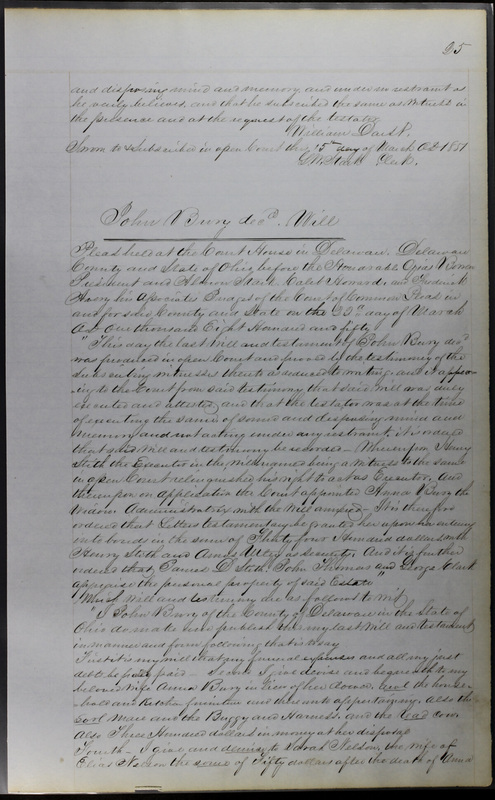 25
and disposing mind and memory, and under no restraint as
he verily believes, and that he subscribed the same as witness in
the presence and at the request of the testator.
William
Sworn to & subscribed in open Court this 15th day of March AD 1851
Clerk.
John Bury decd. Will
Pleas held at the Court House in Delaware, Delaware
County and State of Ohio, before the Honorable Ozias Bowen
President and Aharon Stark Caleb Howard, and Frederick
his Associates Judges of the Court of Common Pleas in
and for said County and State on the day of March
AD One thousand Eight Hundred and fifty
"This day the last Will and testament of John Bury decd
was produced in open Court and proved by the testimony of the
subscribing witnesses thereto reduced to writing and it appear-
ing to the Court from said testimony that said Will was duly
executed and attested, and that the testator was at the time
of executing the same of sound and disposing mind and
memory, and not acting under any restraint, it is ordered
that said Will and testimony be recorded - Whereupon Henry
the Executor in the Will named being a witness to the same
in open Court relinquished his right to act as Executor, and
thereupon on application the Court appointed Anna Bury the
widow Administratrix with the Will annexed. It is therefore
ordered that Letters testamentary be granted her upon her entering
into bonds in the sum of Thirty four Hundred dollars with
Henry and Amos Utley as security. And it is further
ordered that, James D John Thomas and George Clark
appraise the personal property of said Estate"
Which Will and testimony are as follows to Wit,
"I John Bury of the County of Delaware in the State of
Ohio do make and publish this my last Will and testament
in manner and form following that is to say
First it is my will that my funeral expenses and all my just
debts be paid - I give devise and bequeath to my
beloved wife Anna Bury in lieu of her dower, the house-
hold and Kitchen furniture and thereunto appertaining, Also the
Mare and the Buggy and Harness, and the Cow
Also Three Hundred dollars in money at her disposal
Fourth - I give and devise to Sarah Nelson, the wife of
Elias Nelson the sum of Fifty dollars after the death of Anna